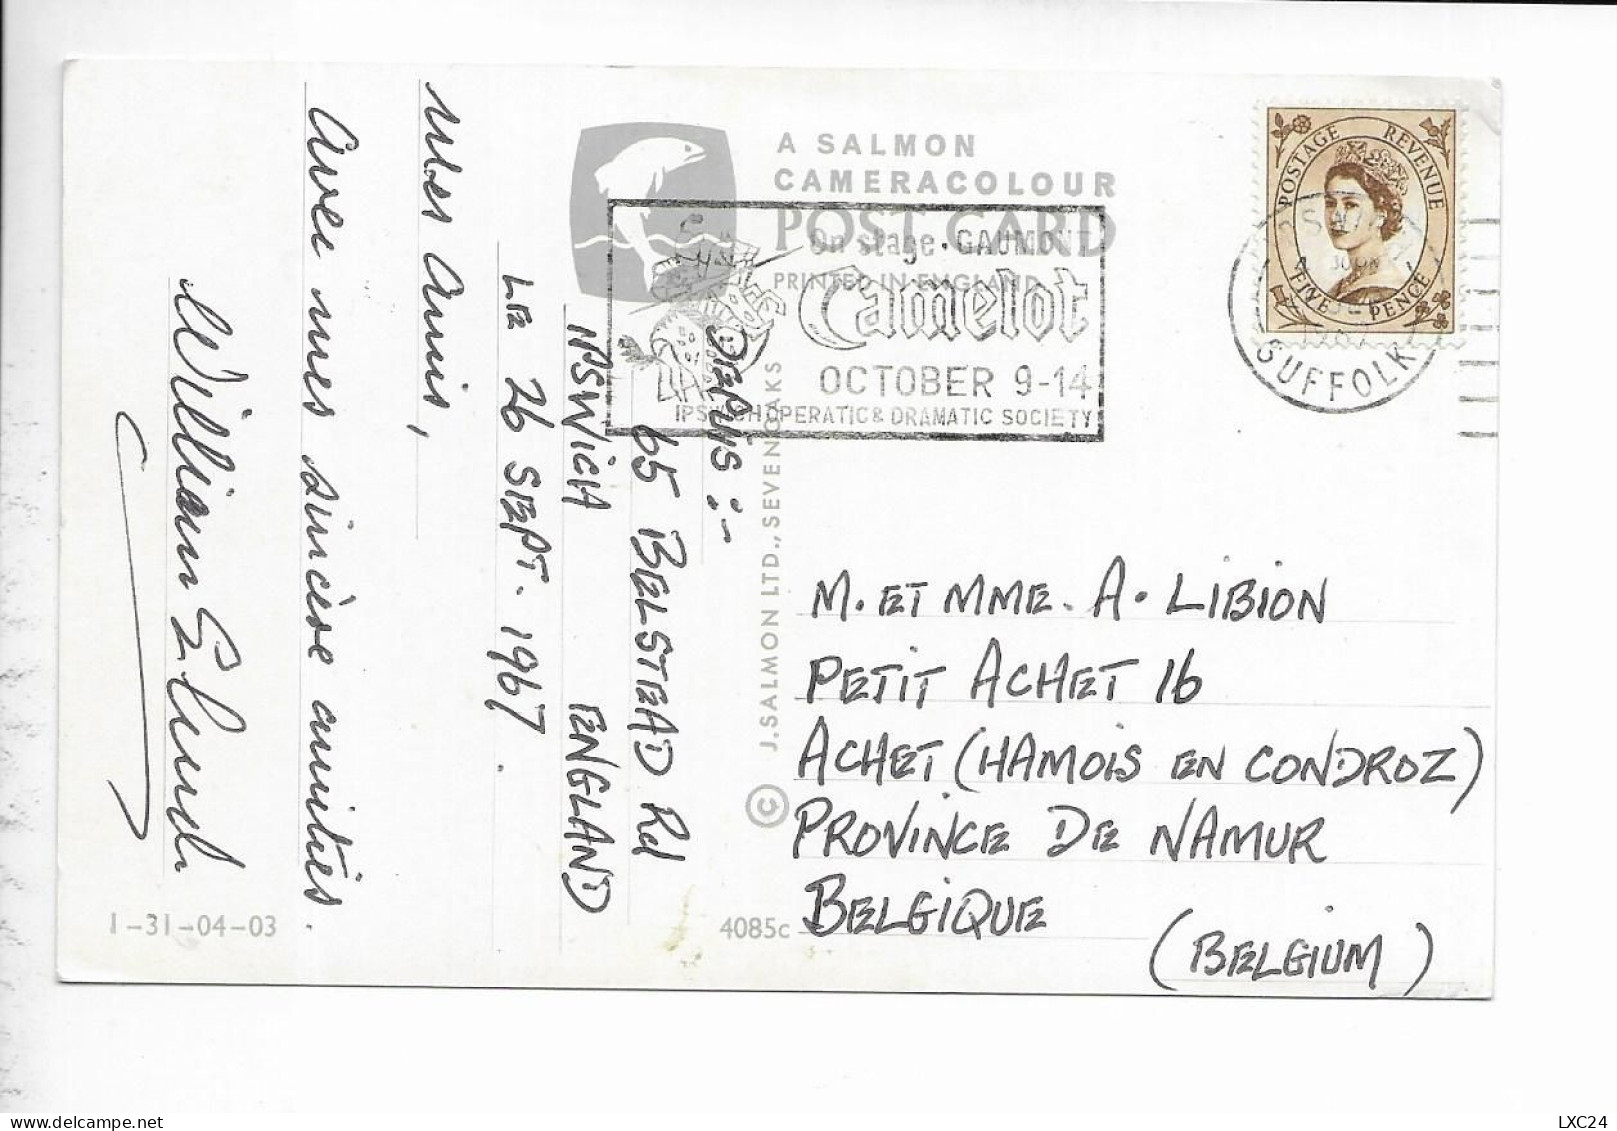 A SALMON
CAMERACOLOUR
POST CARD
PRINTED IN ENGLAND
On stage · GAUMONT
Camelot
OCTOBER 9-14
IPSWICH OPERATIC & DRAMATIC SOCIETY
POSTAGE REVENUE
FIVE PENCE
SUFFOLK
DEPUIS :-
65 BELSTEAD Rd
IPSWICH ENGLAND
LE 26 SEPT. 1967.
Mes Amis,
Avec mes sincère amitiés.
William
© J. SALMON LTD., SEVENOAKS
M. ET MME. A. LIBION
PETIT ACHET 16
ACHET (HAMOIS EN CONDROZ)
PROVINCE DE NAMUR
BELGIQUE
(BELGIUM)
1-31-04-03
4085c
LXC24